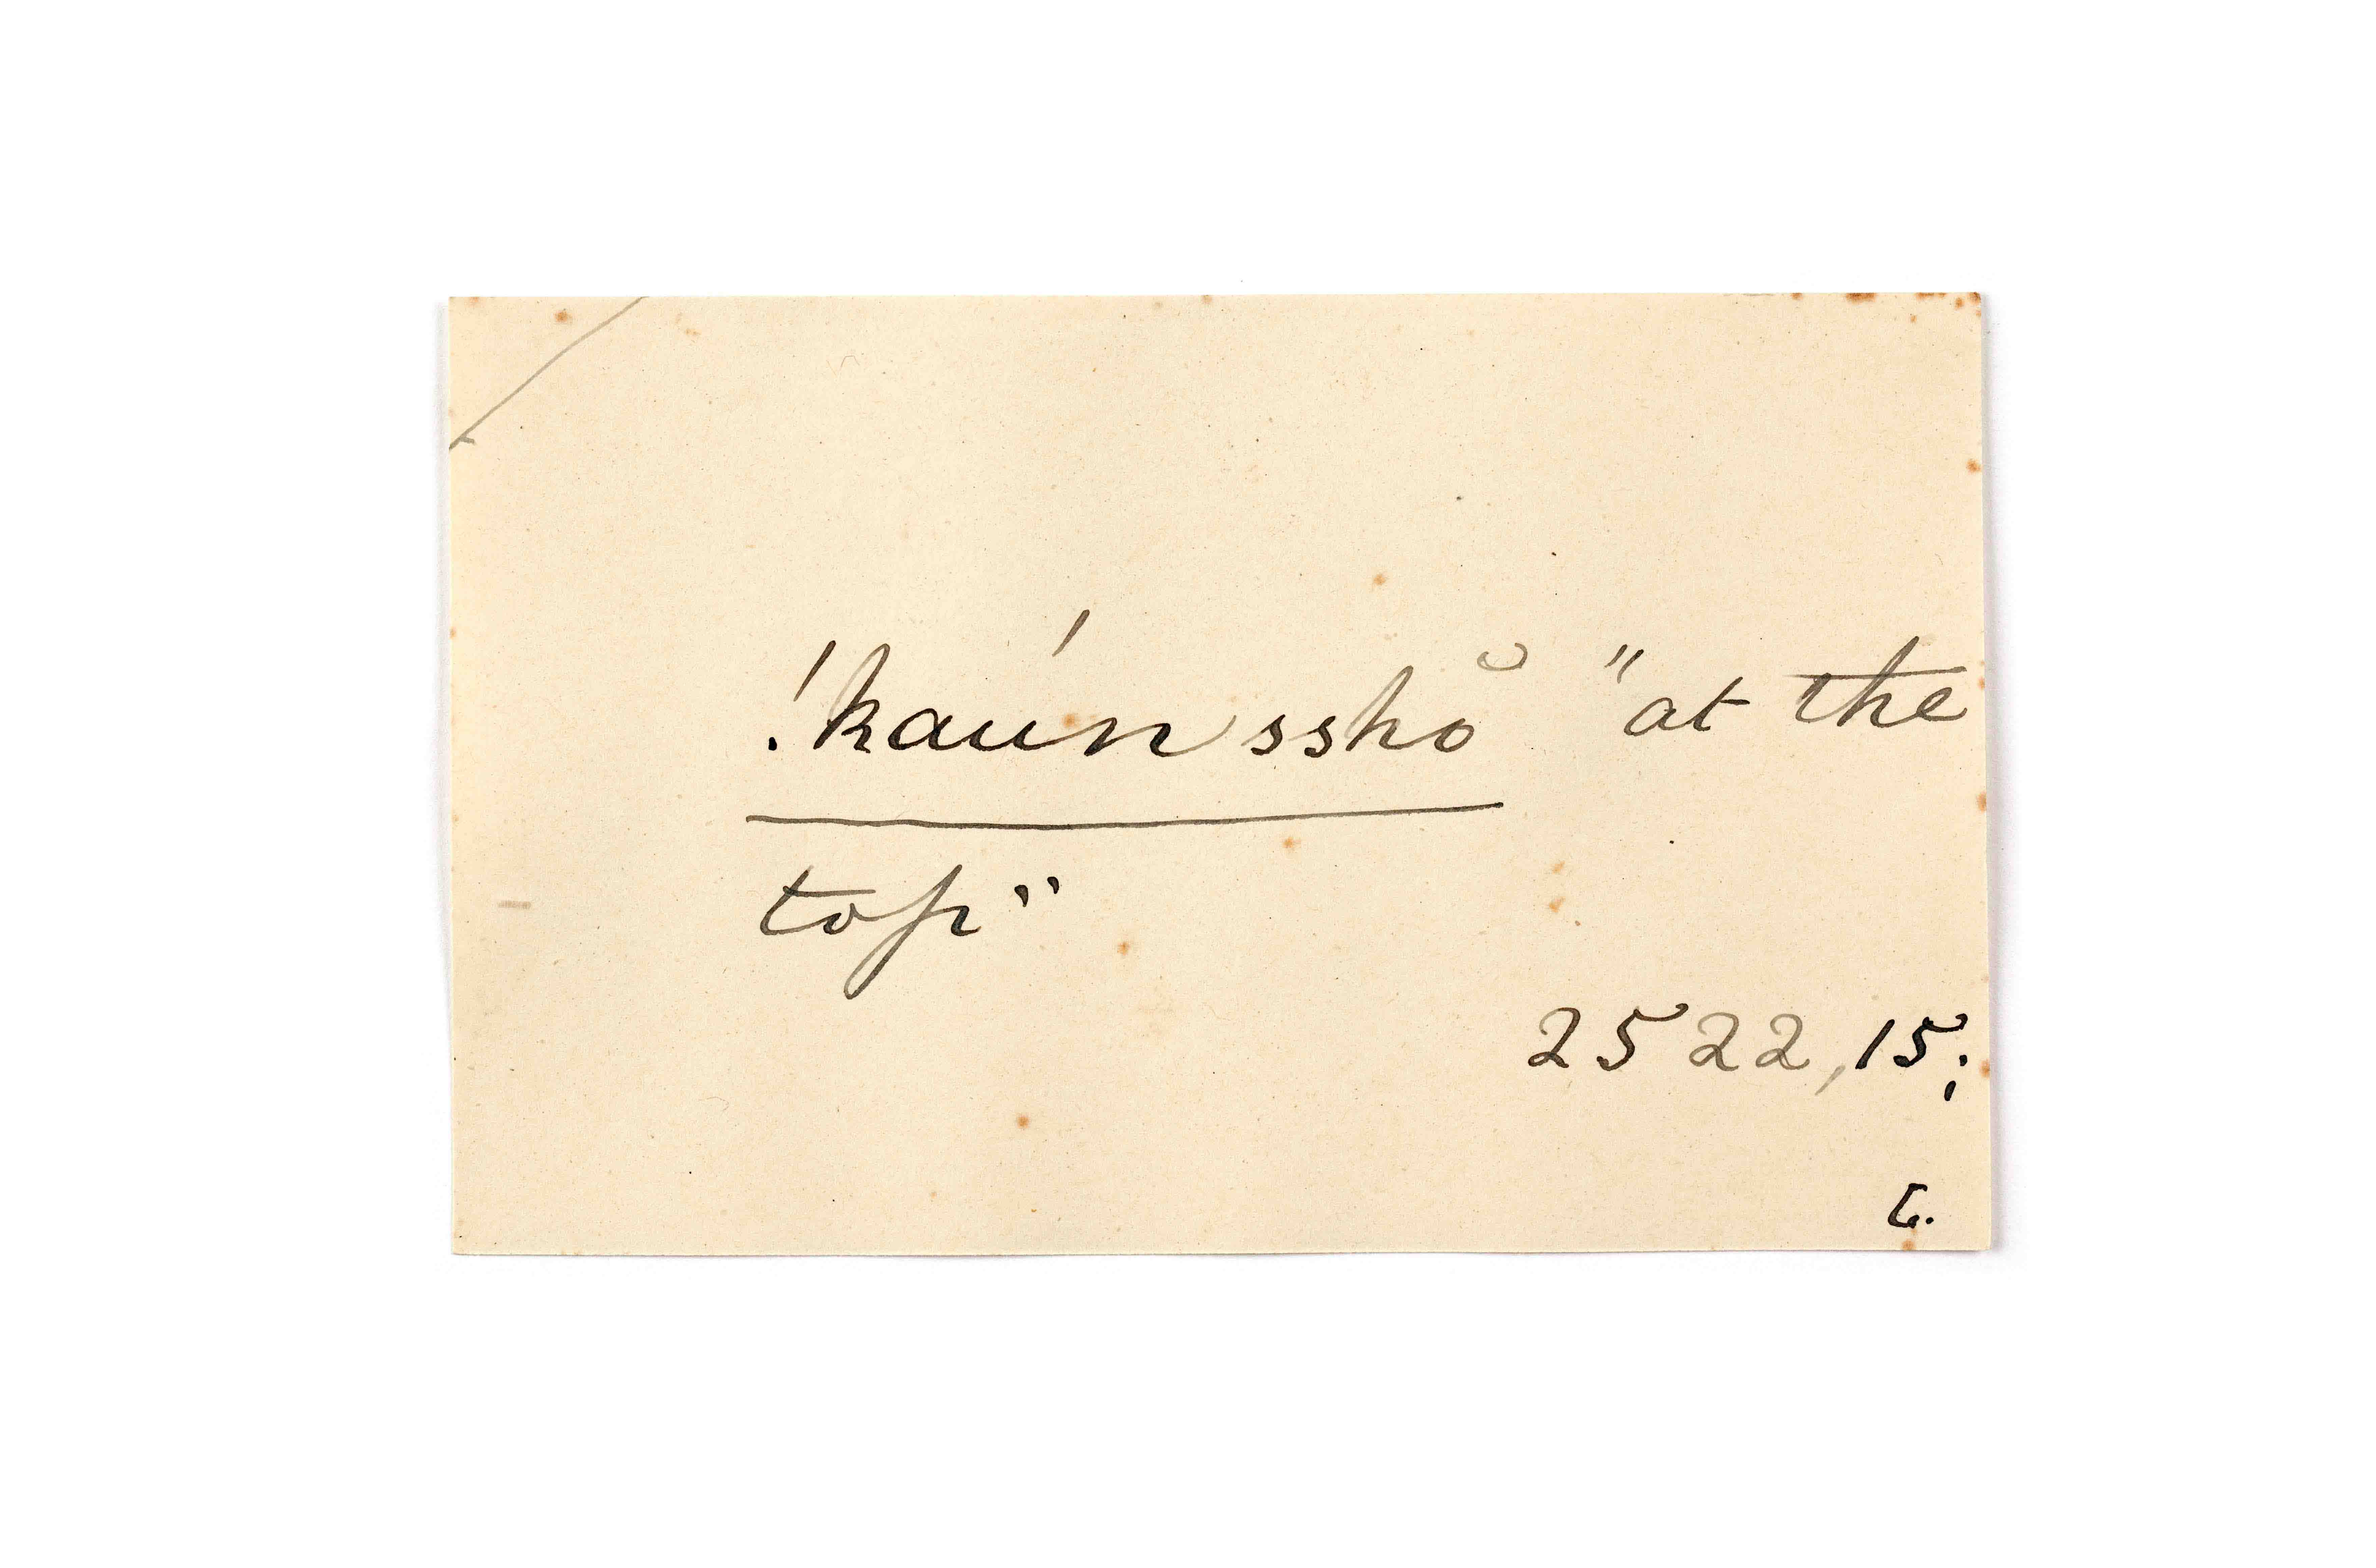 !kaún sshŏ "at the
top"
2522,15;
L.